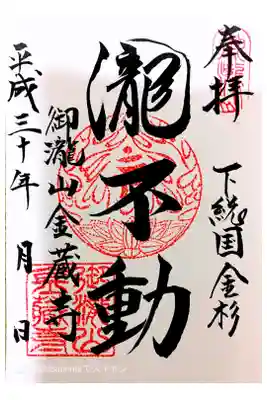 奉拝
下総国金杉
瀧不動
御瀧山金蔵寺
平成三十年 月 日